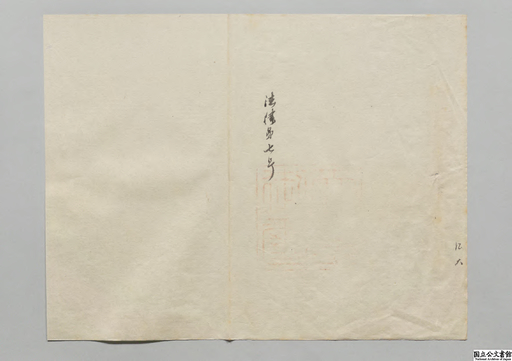 法律第七号
国立公文書館
National Archives of Japan